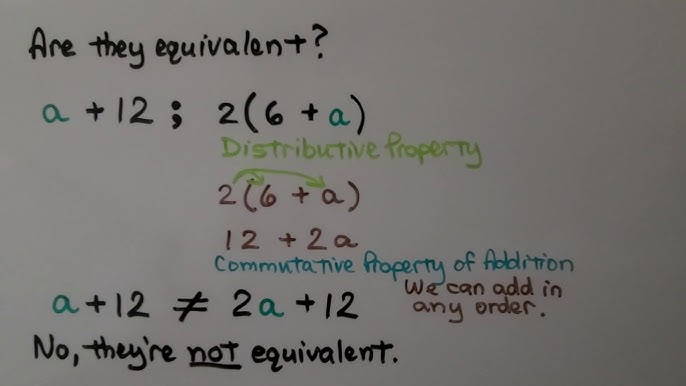 Are they equivalent?
a + 12 ; 2(6 + a)
Distributive Property
2(6 + a)
12 + 2a
Commutative Property of Addition
We can add in
any order.
a + 12 ≠ 2a + 12
No, they're not equivalent.